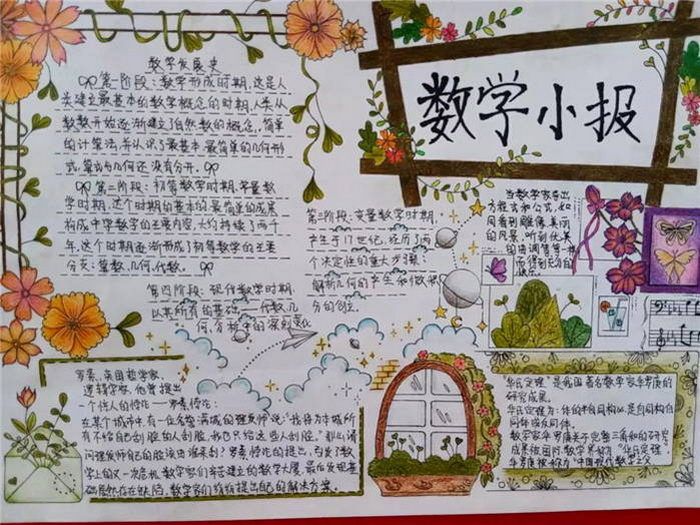 数学小报
数学发展史
第一阶段：数学形成时期，这是人
类建立最基本的数学概念的时期，人类从
数数开始逐渐建立了自然数的概念，简单
的计算法，并认识了最基本最简单的几何形
式，算术与几何还没有分开。
第二阶段：初等数学时期，常量数
学时期，这个时期的基本的最简单的成果
构成中学数学的主要内容，大约持续了两千
年，这个时期逐渐形成了初等数学的主要
分支：算数、几何、代数。
第三阶段：变量数学时期。
产生于17世纪，经历了两
个决定性的重大步骤：
解析几何的产生和微积
分的创立。
第四阶段：现代数学时期
以其所有的基础——代数、几
何、分析中的深刻变化
当数学家导出
方程式和公式，如
同看到雕像、美丽
的风景，听到优美
的曲调等等一样
而得到充分的
快乐。
罗素，英国哲学家、
逻辑学家，他曾提出
一个惊人的悖论——罗素悖论：
在某个城市中有一位名誉满城的理发师说："我将为本城所
有不给自己刮脸的人刮脸，我也只给这些人刮脸。"那么请
问理发师自己的脸该由谁来刮？罗素悖论的提出，引发了数
学上的又一次危机，数学家们辛苦建立的数学大厦，最后发现基
础居然存在缺陷，数学家们纷纷提出自己的解决方案。
华氏定理"是我国著名数学家华罗庚的
研究成果。
华氏定理为：体的半自同构必是自同构自
同体或反同体。
数学家华罗庚关于完整三角和的研究
成果被国际数学界称为"华氏定理"，
华罗庚被称为"中国现代数学之父"